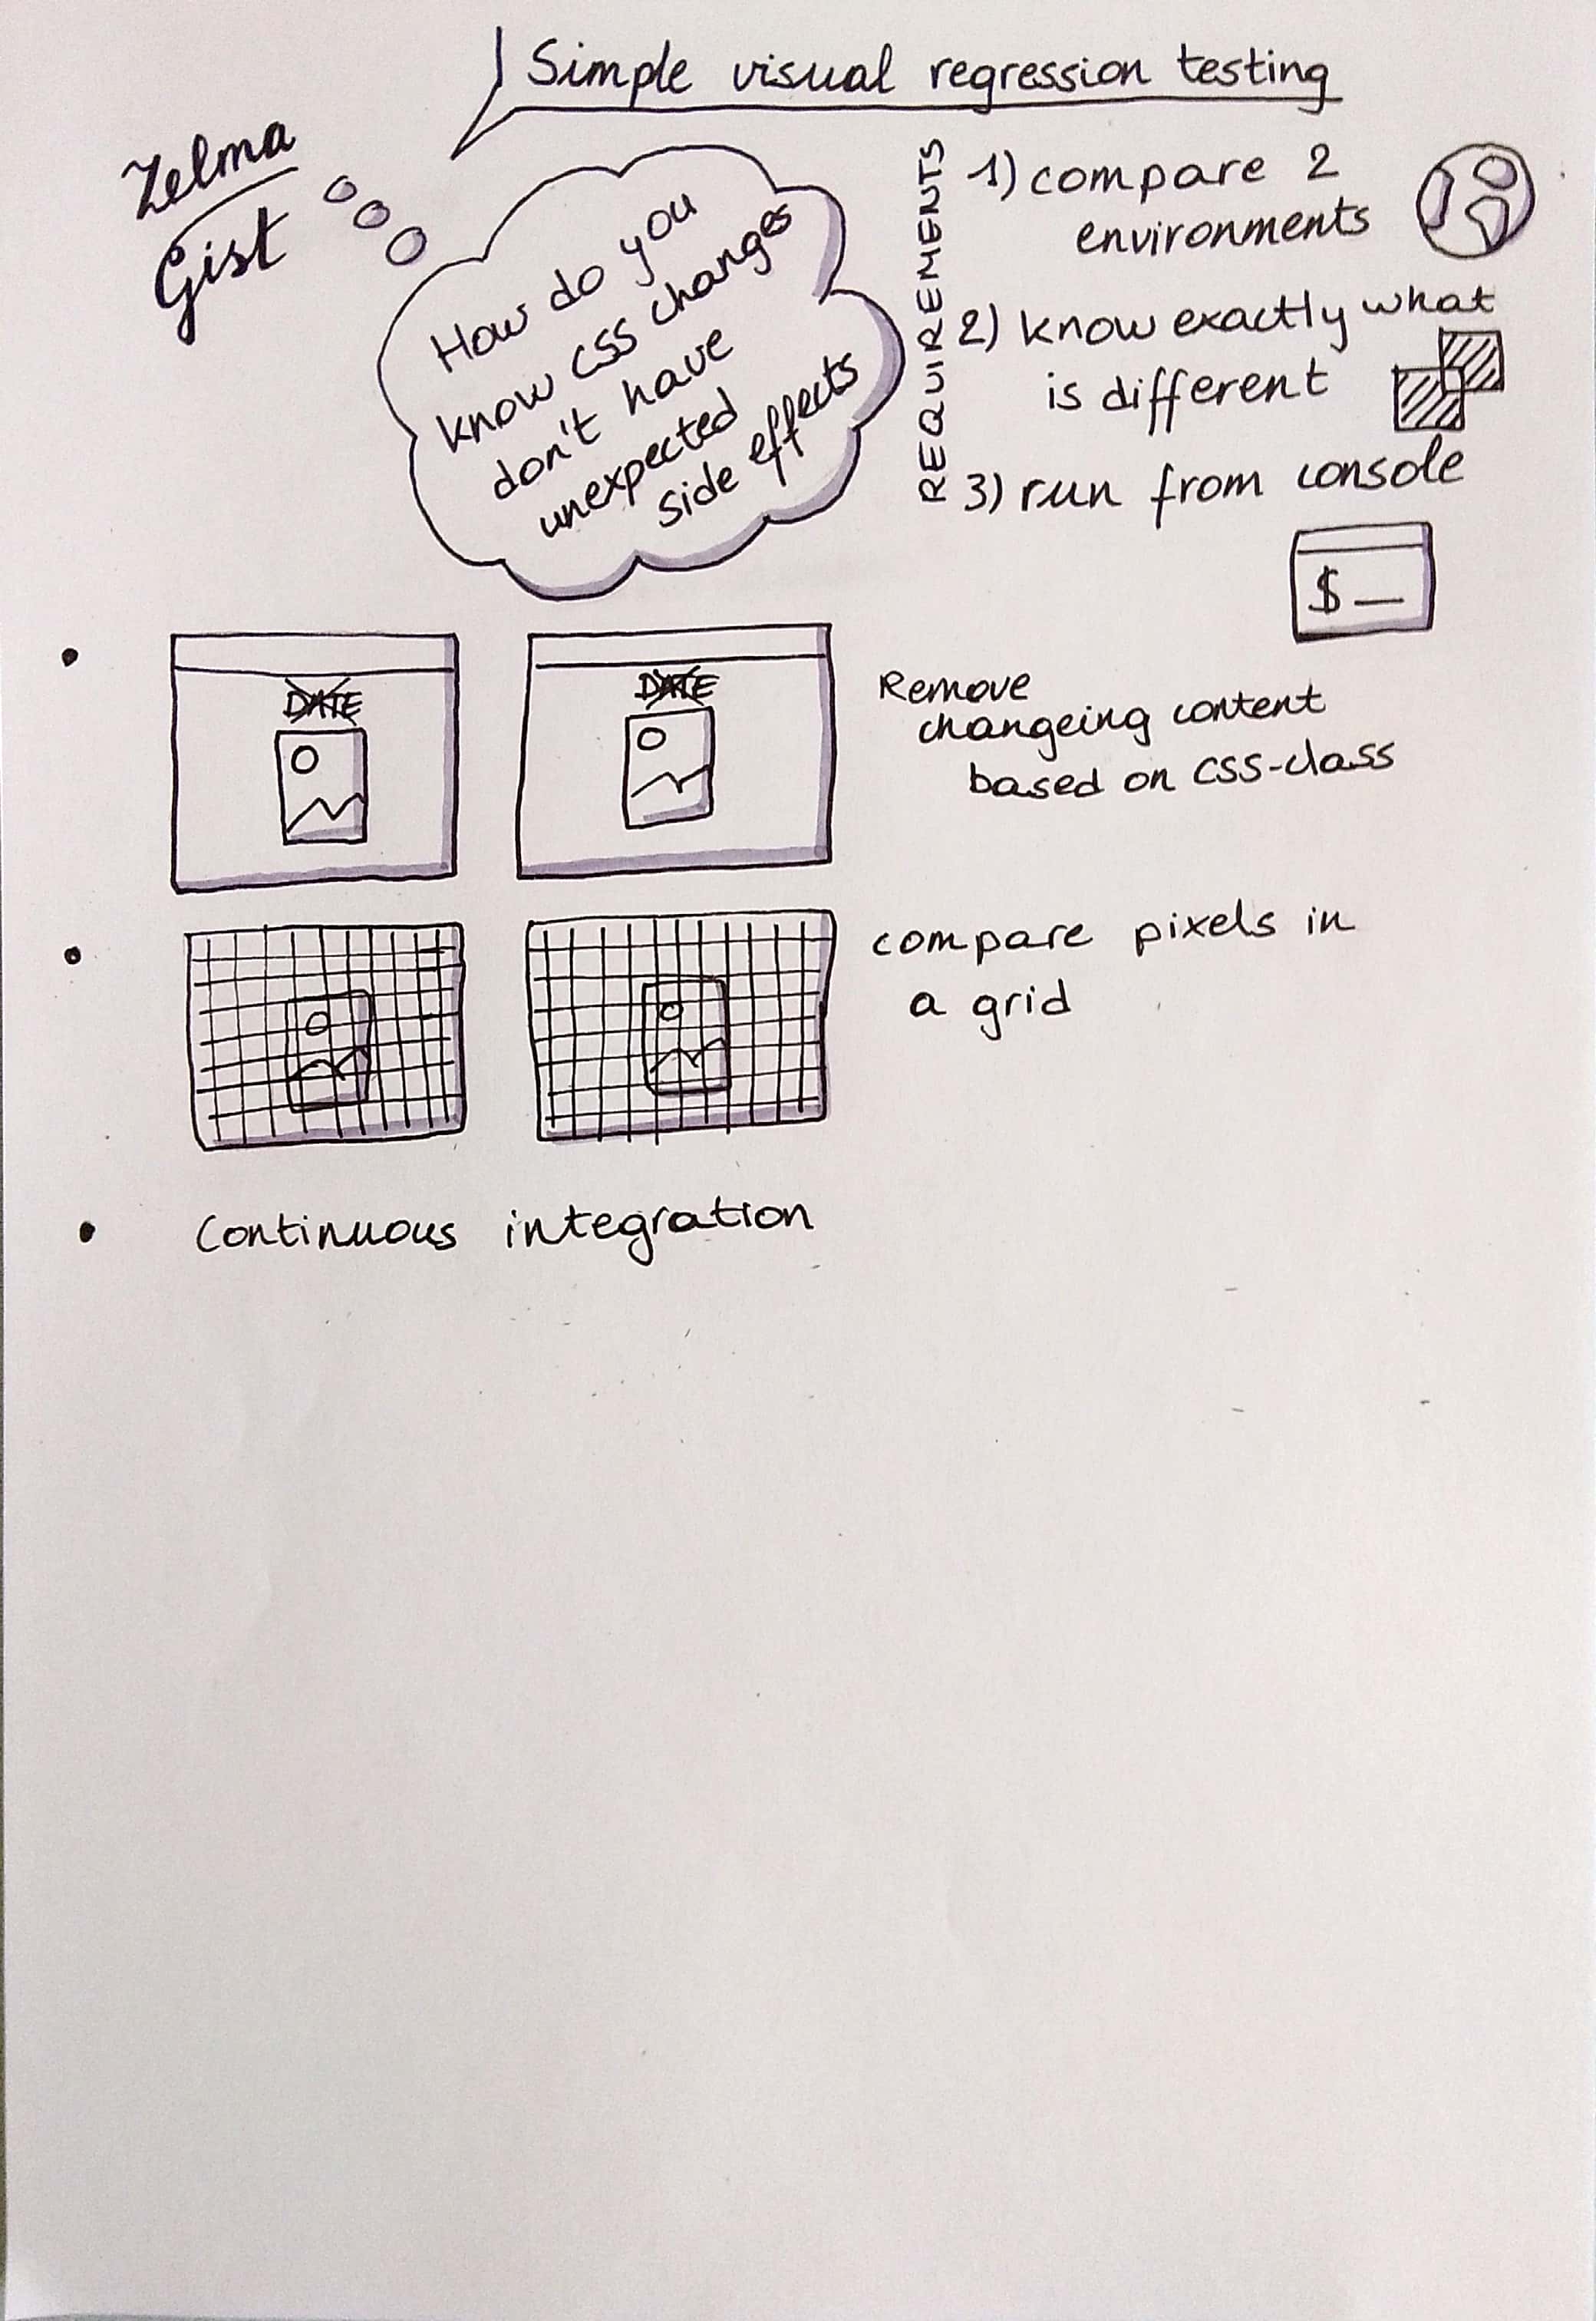 Simple visual regression testing
Zelma
Gist
How do you
know css changes
don't have
unexpected
side effects
REQUIREMENTS
1) compare 2
environments
2) know exactly what
is different
3) run from console
$ _
DATE
DATE
Remove
changeing content
based on css-class
compare pixels in
a grid
Continuous integration